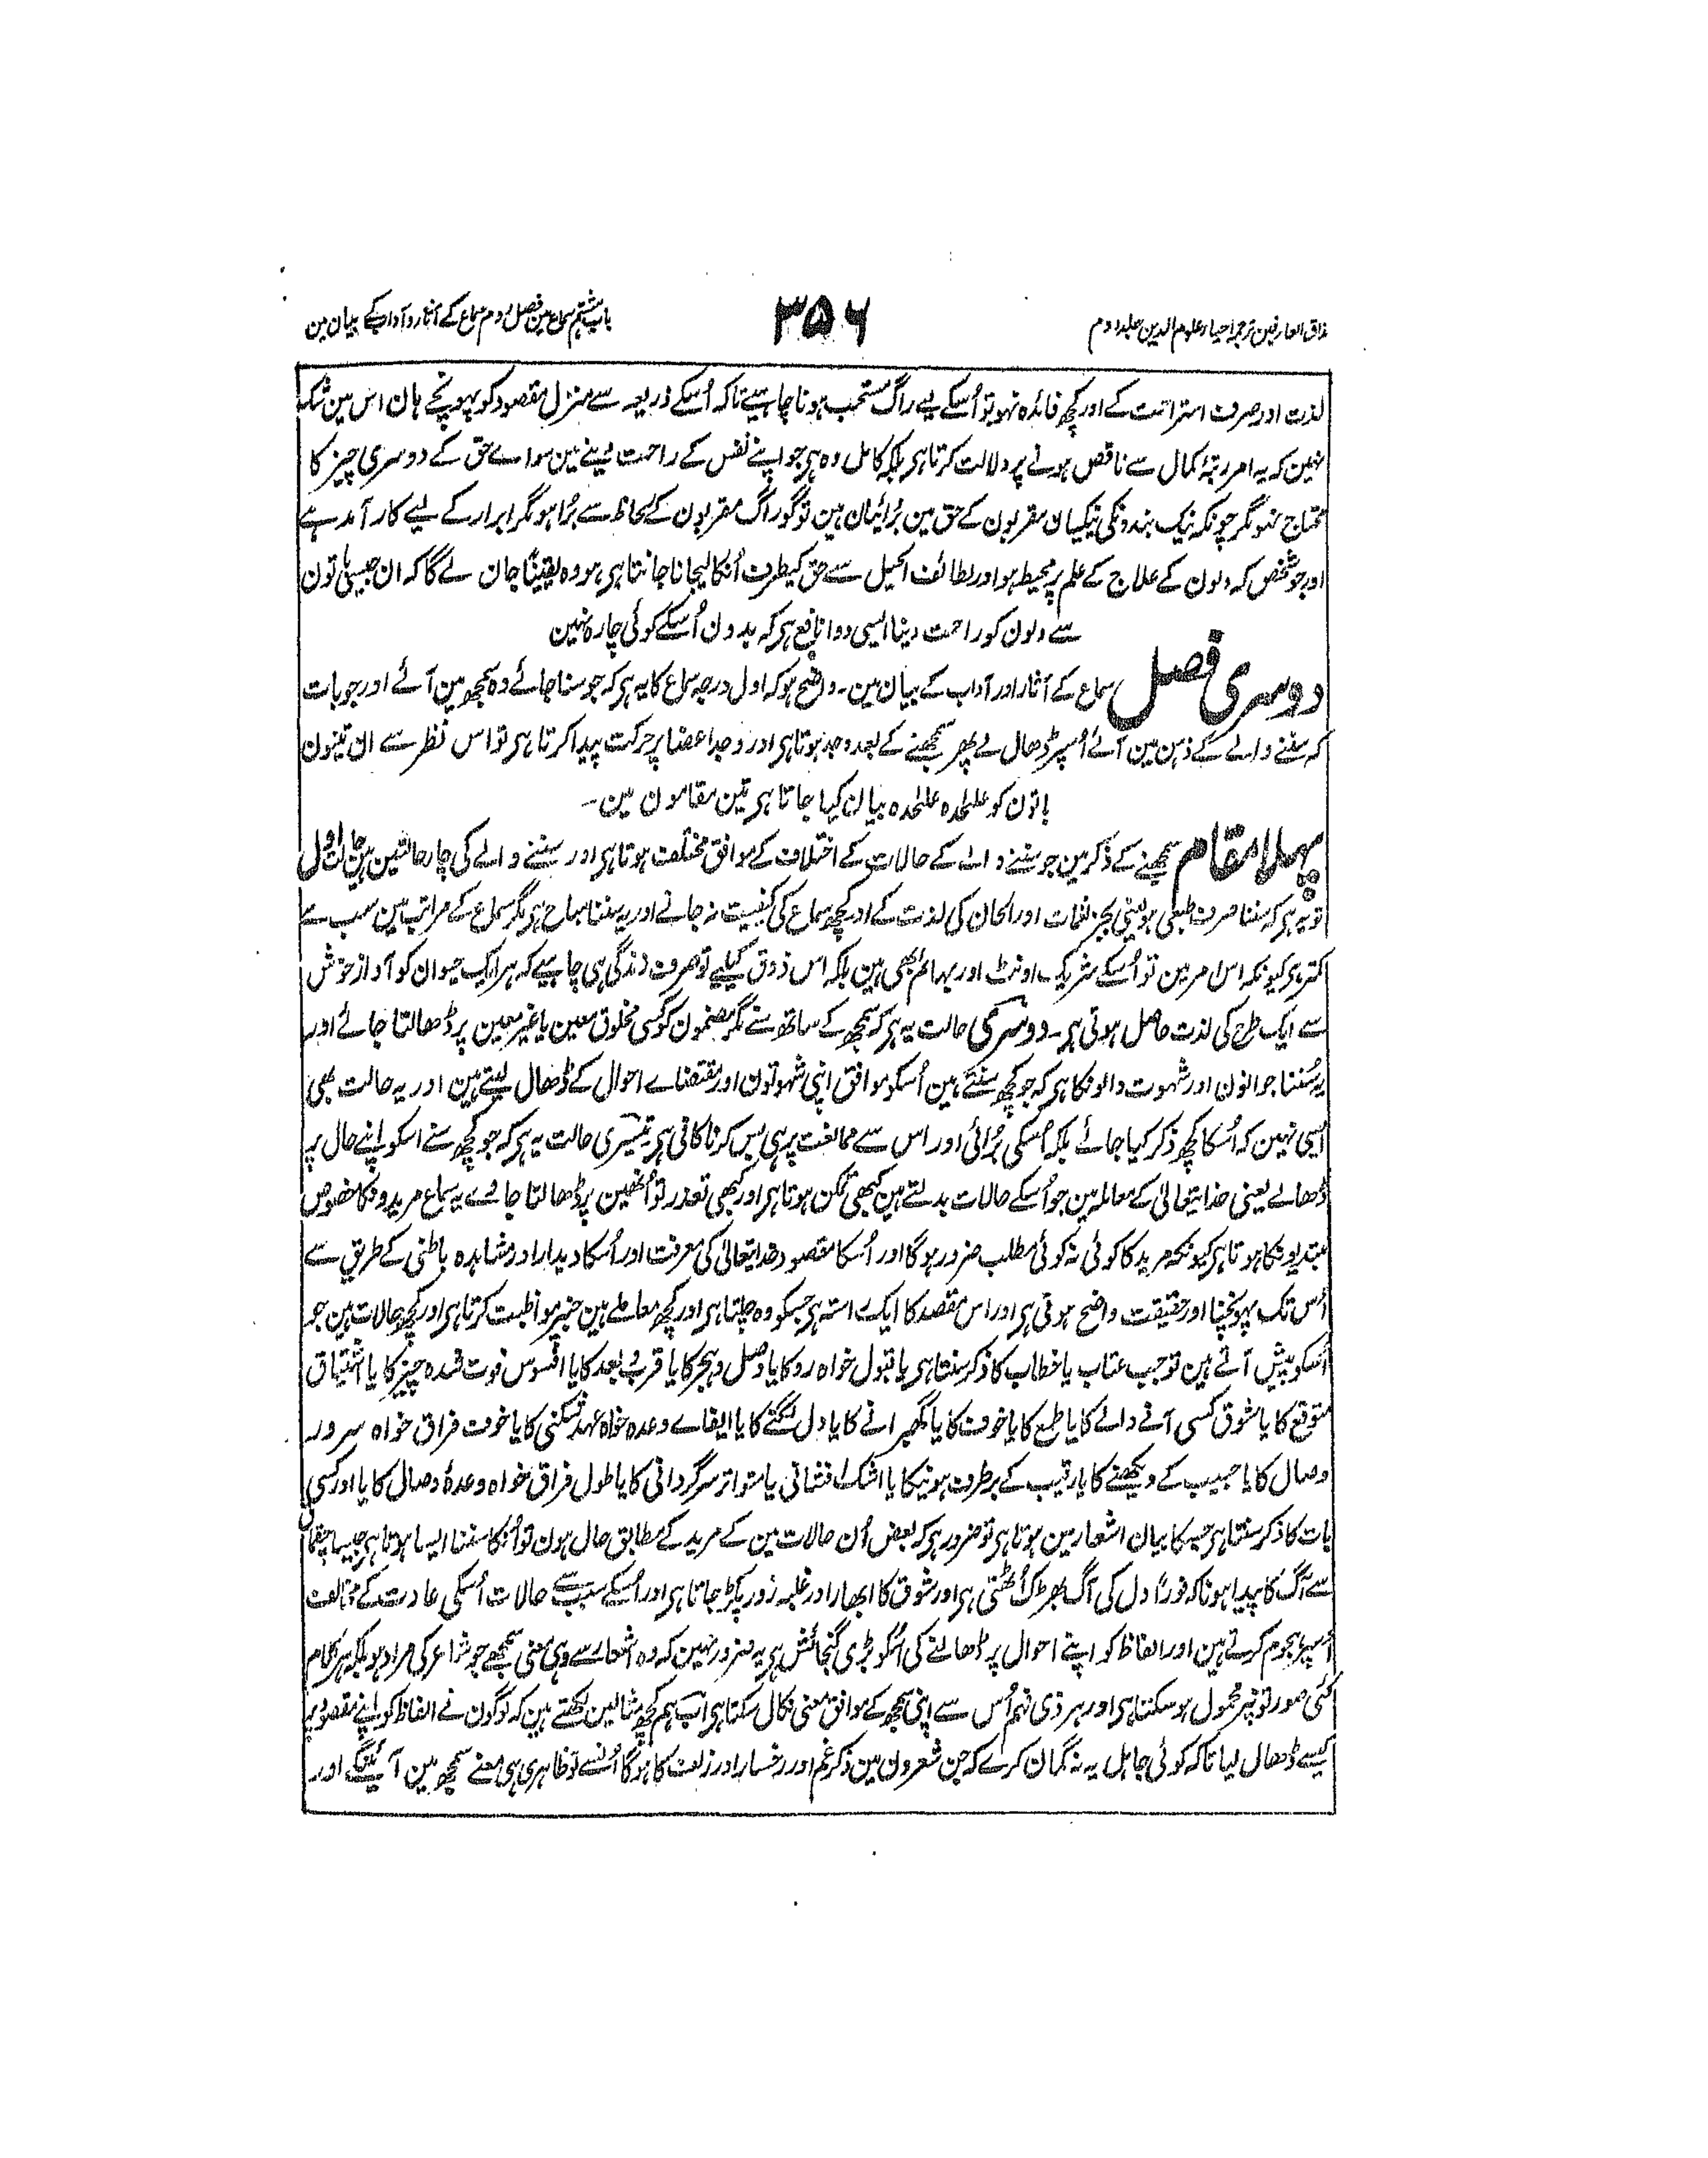 ذاق العارفین ترجمہ احیاء علوم الدین جلد دوم
۳۵۶
باب ہشتم سماع مین فصل دوم سماع کے آثار و آداب کے بیان مین
لذت اور صرف استراحت کے اور کچھ فائدہ نہو تو اُسکے لیے راگ مستحب ہونا چاہیے تاکہ اُسکے ذریعہ سے منزل مقصود کو پہونچے ہان اس مین شک
نہین کہ یہ امر رتبۂ کمال سے ناقص ہونے پر دلالت کرتا ہی بلکہ کامل وہ ہی جو اپنے نفس کے راحت دینے مین سواے حق کے دوسری چیز کا
محتاج نہو مگر چونکہ نیک بندونکی نیکیان مقربون کے حق مین بُرائیان ہین تو گو راگ مقربون کے لحاظ سے بُرا ہو مگر ابرار کے لیے کار آمد ہے
اور جو شخص کہ دلون کے علاج کے علم پر محیط ہو اور لطائف الحیل سے حق کیطرف اُنکا لیجانا جانتا ہی ہو وہ یقیناً جان لے گا کہ ان جیسی باتون
سے دلون کو راحت دینا ایسی دوا نافع ہی کہ بدون اُسکے کوئی چارہ نہین
دوسری فصل سماع کے آثار اور آداب کے بیان مین۔ واضح ہو کہ اول درجہ سماع کا یہ ہی کہ جو سنا جائے وہ سمجھ مین آئے اور جو بات
کہ سننے والے کے ذہن مین آئے اُسپر ڈھال لے پھر سمجھنے کے بعد وجد ہوتا ہی اور وجد اعضا پر حرکت پیدا کرتا ہی تو اس نظر سے ان تینون
باتون کو علٰحدہ علٰحدہ بیان کیا جاتا ہی تین مقامون مین۔
پہلا مقام سمجھنے کے ذکر مین جو سننے والے کے حالات کے اختلاف کے موافق مختلف ہوتا ہی اور سننے والے کی چار حالتین ہین حالت اول
تو یہ ہی کہ سننا صرف طبعی ہو یعنی بجز نغمات اور الحان کی لذت کے اور کچھ سماع کی کیفیت نہ جانے اور یہ سننا مباح ہی مگر سماع کے مراتب مین سب سے
کمتر ہی کیونکہ اس امر مین تو اُسکے شریک اونٹ اور بہائم بھی ہین بلکہ اس ذوق کیلیے تو صرف زندگی ہی چاہیے کہ ہر ایک حیوان کو آواز خوش
سے ایک طرح کی لذت حاصل ہوتی ہی۔ دوسری حالت یہ ہی کہ سمجھ کے ساتھ سنے مگر مضمون کو کسی مخلوق معین یا غیر معین پر ڈھالتا جائے اور
یہ سُننا جوانون اور شہوت والونکا ہی کہ جو کچھ سنتے ہین اُسکو موافق اپنی شہوتون اور مقتضاے احوال کے ڈھال لیتے ہین اور یہ حالت بھی
ایسی نہین کہ اُسکا کچھ ذکر کیا جائے بلکہ اُسکی بُرائی اور اس سے ممانعت پر ہی بس کرنا کافی ہی تیسری حالت یہ ہی کہ جو کچھ سنے اسکو اپنے حال پر
ڈھالے یعنی خدایتعالیٰ کے معاملہ مین جو اُسکے حالات بدلتے ہین کبھی تمکن ہوتا ہی اور کبھی تعذر تو اُنھین پر ڈھالتا جاوے یہ سماع مریدونکا خصوص
مبتدیونکا ہوتا ہی کیونکہ مرید کا کوئی نہ کوئی مطلب ضرور ہوگا اور اُسکا مقصود خدایتعالیٰ کی معرفت اور اُسکا دیدار اور مشاہدہ باطنی کے طریق سے
اُس تک پہونچنا اور حقیقت واضح ہوتی ہی اور اس مقصد کا ایک راستہ ہی جسکو وہ چلتا ہی اور کچھ معاملے ہین جنپر مواظبت کرتا ہی اور کچھ حالات ہین جو
اُسکو پیش آتے ہین تو جب عتاب یا خطاب کا ذکر سنتا ہی یا قبول خواہ رد کا یا وصل و ہجر کا یا قرب و بعد کا یا افسوس فوت شدہ چیز کا یا اشتیاق
متوقع کا یا شوق کسی آنے والے کا یا طمع کا یا خوف کا یا گھبرانے کا یا دل لگنے کا یا ایفاے وعدہ خواہ عہد شکنی کا یا خوف فراق خواہ سرور
وصال کا یا حبیب کے دیکھنے کا یا رقیب کے برطرف ہونیکا یا اشک افشانی یا متواتر سرگردانی کا یا طول فراق خواہ وعدۂ وصال کا یا اور کسی
بات کا ذکر سنتا ہی جسکا بیان اشعار مین ہوتا ہی تو ضرور ہی کہ بعض اُن حالات مین کے مرید کے مطابق حال ہون تو اُنکا سننا ایسا ہوتا ہی جیسا چقماق
سے آگ کا پیدا ہونا کہ فوراً دل کی آگ بھڑک اُٹھتی ہی اور شوق کا ابھار اور غلبہ زور پکڑ جاتا ہی اور اُسکے سبب سے حالات اُسکی عادت کے مخالف
اُسپر ہجوم کرتے ہین اور الفاظ کو اپنے احوال پر ڈھالنے کی اُسکو بڑی گنجائش ہی یہ ضرور نہین کہ وہ اشعار سے وہی معنی سمجھے جو شاعر کی مراد ہو بلکہ ہر کلام
کئی صورتونپر محمول ہو سکتا ہی اور ہر ذی فہم اُس سے اپنی سمجھ کے موافق معنی نکال سکتا ہی اب ہم کچھ مثالین لکھتے ہین کہ لوگون نے الفاظ کو اپنے مقصود پر
کیسے ڈھال لیا تاکہ کوئی جاہل یہ نہ گمان کرے کہ جن شعرون مین ذکر غم اور رخسار اور زلف کا ہوگا اُنسے تو ظاہری ہی معنے سمجھ مین آئینگے اور